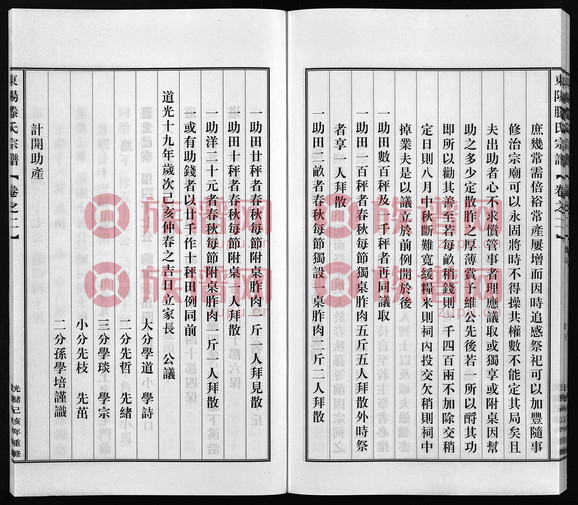 東陽滕氏宗譜 卷之二
庶幾常需倍裕常產屢增而因時追感祭祀可以加豐隨事
修治宗廟可以永固將時不得操共權數不能定其局矣且
夫出助者心不求償管事者理應議取或獨享或附桌因幫
助之多少定散胙之厚薄賞予維公先後若一所以酬其功
即所以勸其善至若每畝稍錢則一千四百兩不加除交稍
定日則八月中秋斷難寬緩糧米則祠內投交欠稍則祠中
掉業夫是以議立於前例開於後
一助田數百秤及一千秤者西同議取
一助田一百秤者春秋每節獨桌胙肉五斤五人拜散外時祭
者享一人拜散
一助田二畝者春秋每節獨設一桌胙肉二斤二人拜散
一助田廿秤者春秋每節附桌胙肉一斤一人拜見散
一助田十秤者春秋每節附桌一人拜散
一助洋三十元者春秋每節附桌胙肉一斤一人拜散
一或有助錢者以廿千作十秤田例同前
道光十九年歲次己亥仲春之吉日立家長 公議
大分學道 小學詩
二分先哲 先緒
三分學琰 學宗
小分先枝 先茁
二分孫學培謹識
計開助產
東陽滕氏宗譜 卷之二
光緒己亥年重修
族譜网
zupu.cn